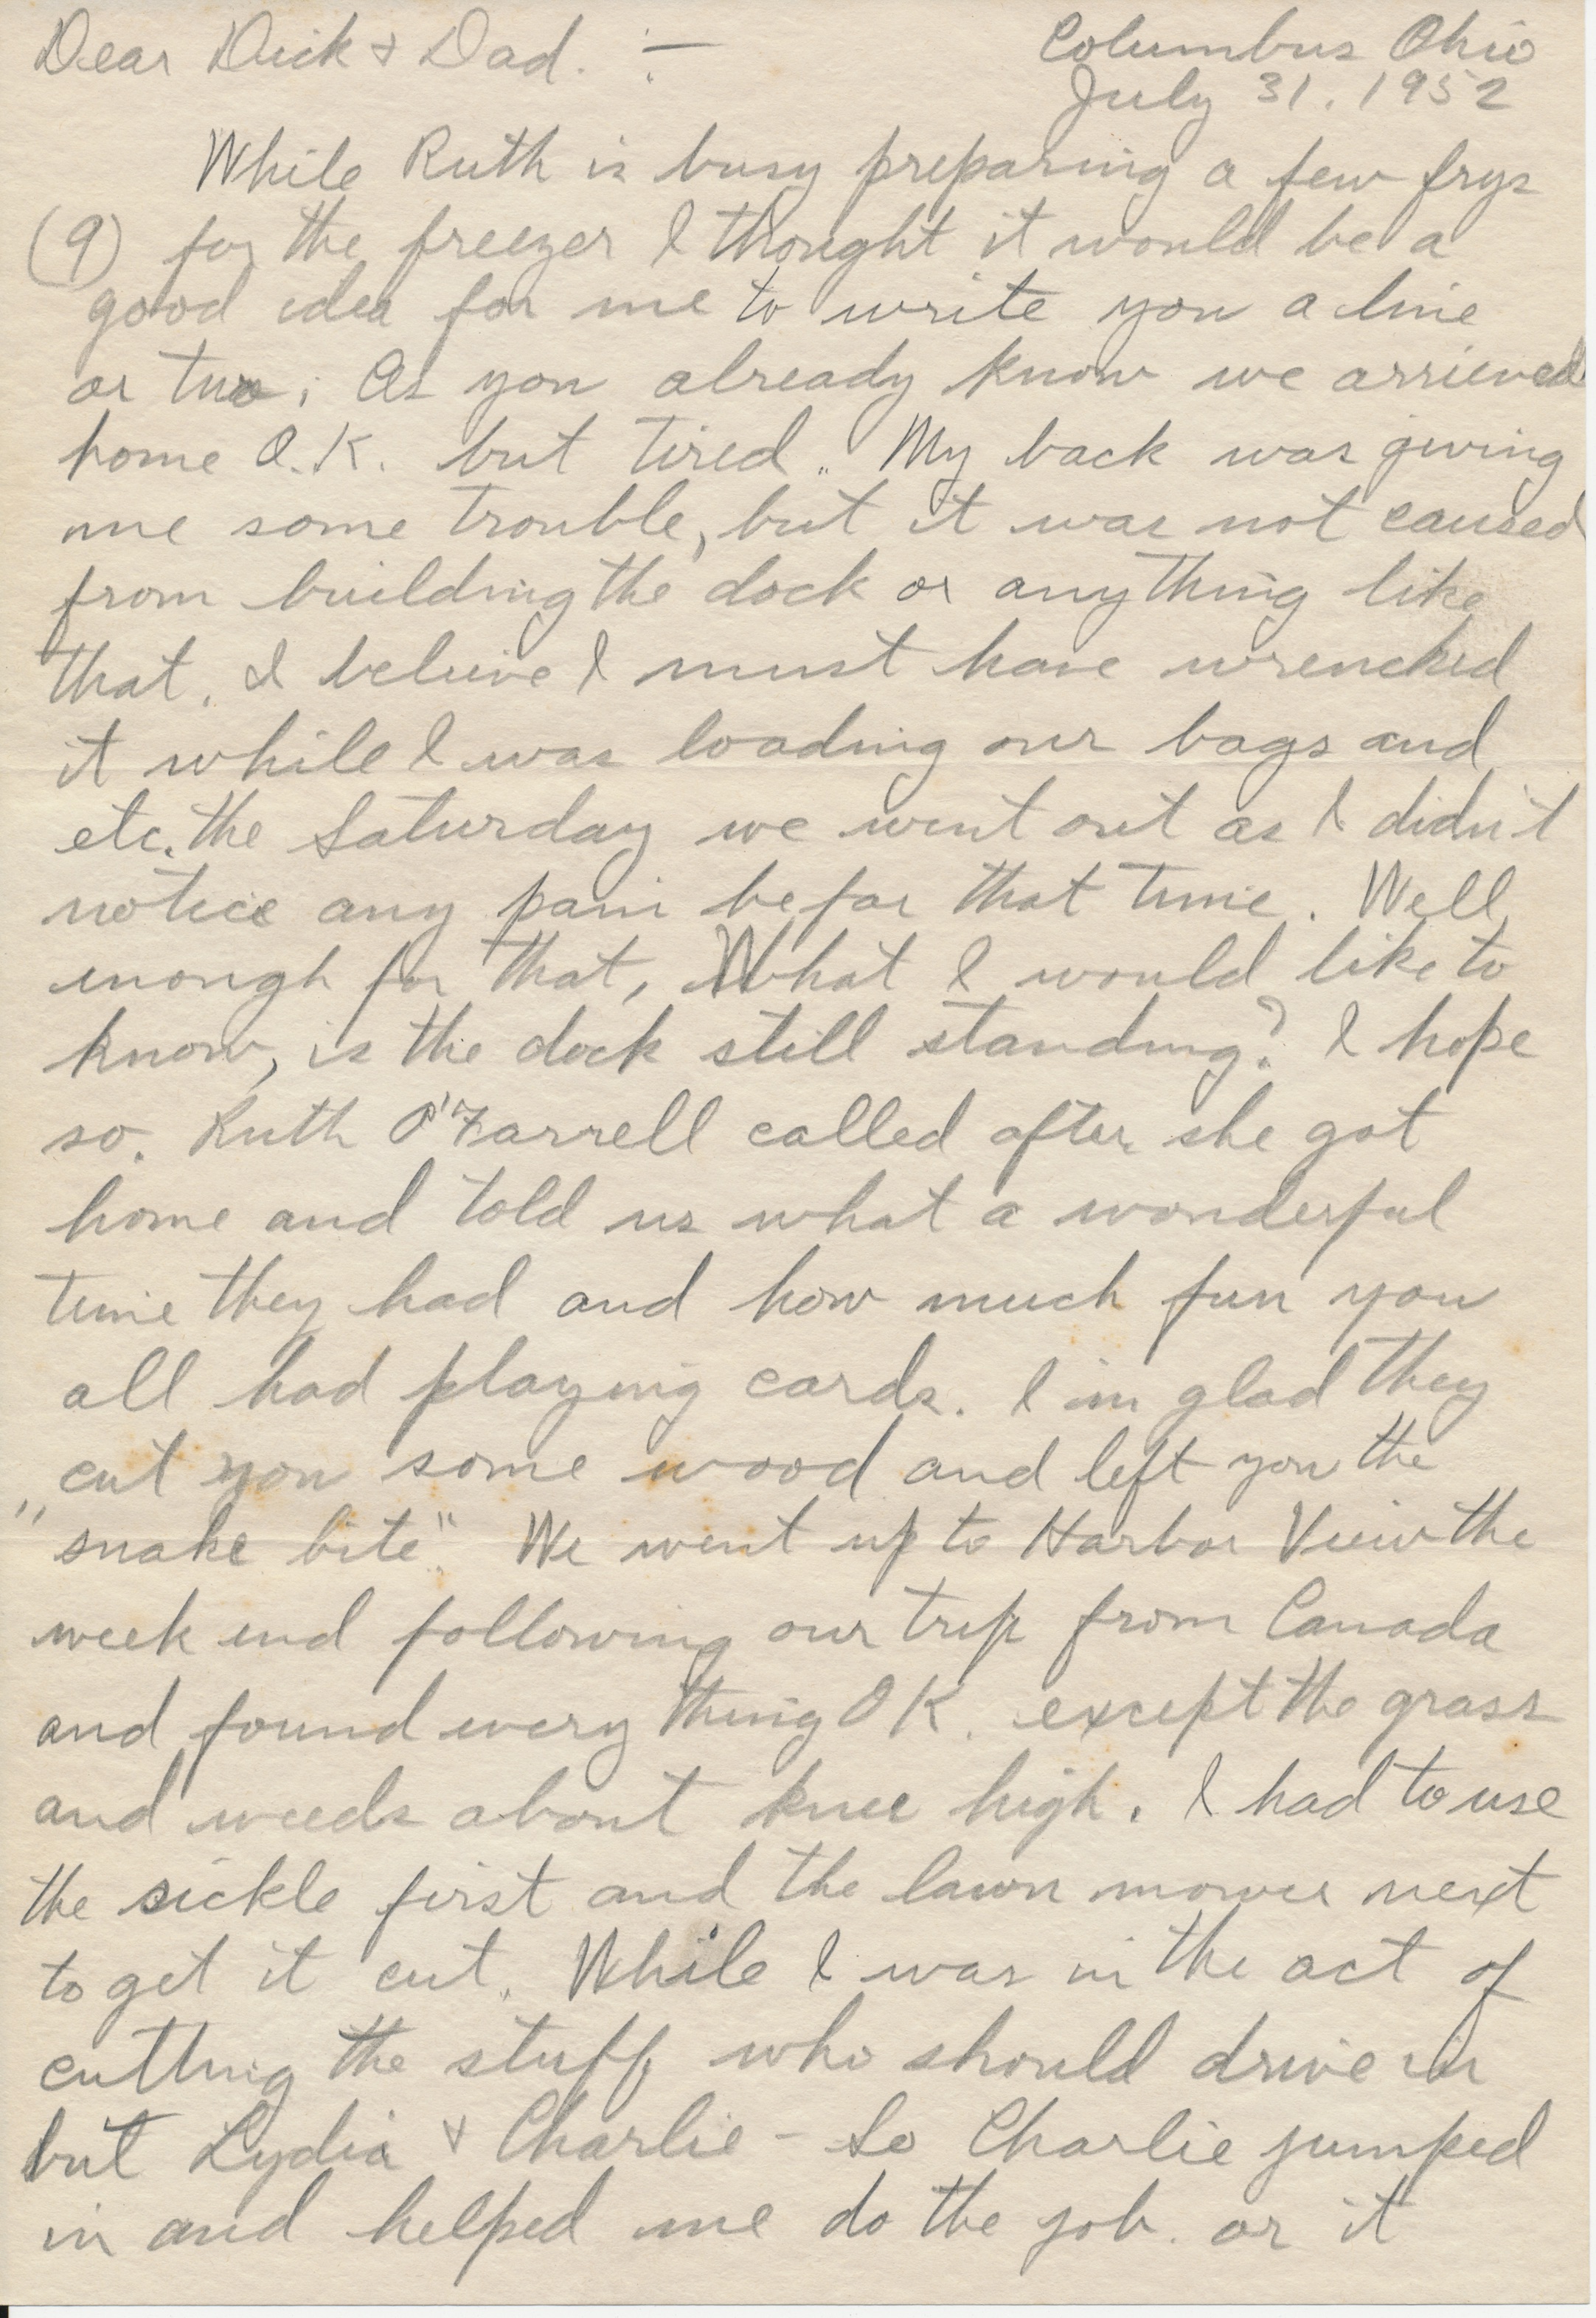 Dear Dick & Dad. :—
Columbus Ohio
July 31, 1952
While Ruth is busy preparing a few frys
(9) for the freezer I thought it would be a
good idea for me to write you a line
or two. As you already know we arrieved
home O.K. but tired. My back was giving
me some trouble, but it was not caused
from building the dock or anything like
that. I believe I must have wrencked
it while I was loading our bags and
etc. the Saturday we went out as I didn't
notice any pain befor that time. Well
enough for that, What I would like to
know, is the dock still standing? I hope
so. Ruth O'Farrell called after she got
home and told us what a wonderful
time they had and how much fun you
all had playing cards. I'm glad they
cut you some wood and left you the
"snake bite". We went up to Harbor View the
week end following our trip from Canada
and found every thing OK. except the grass
and weeds about knee high. I had to use
the sickle first and the lawn mower next
to get it cut. While I was in the act of
cutting the stuff who should drive in
but Lydia & Charlie - So Charlie jumped
in and helped me do the job. or it